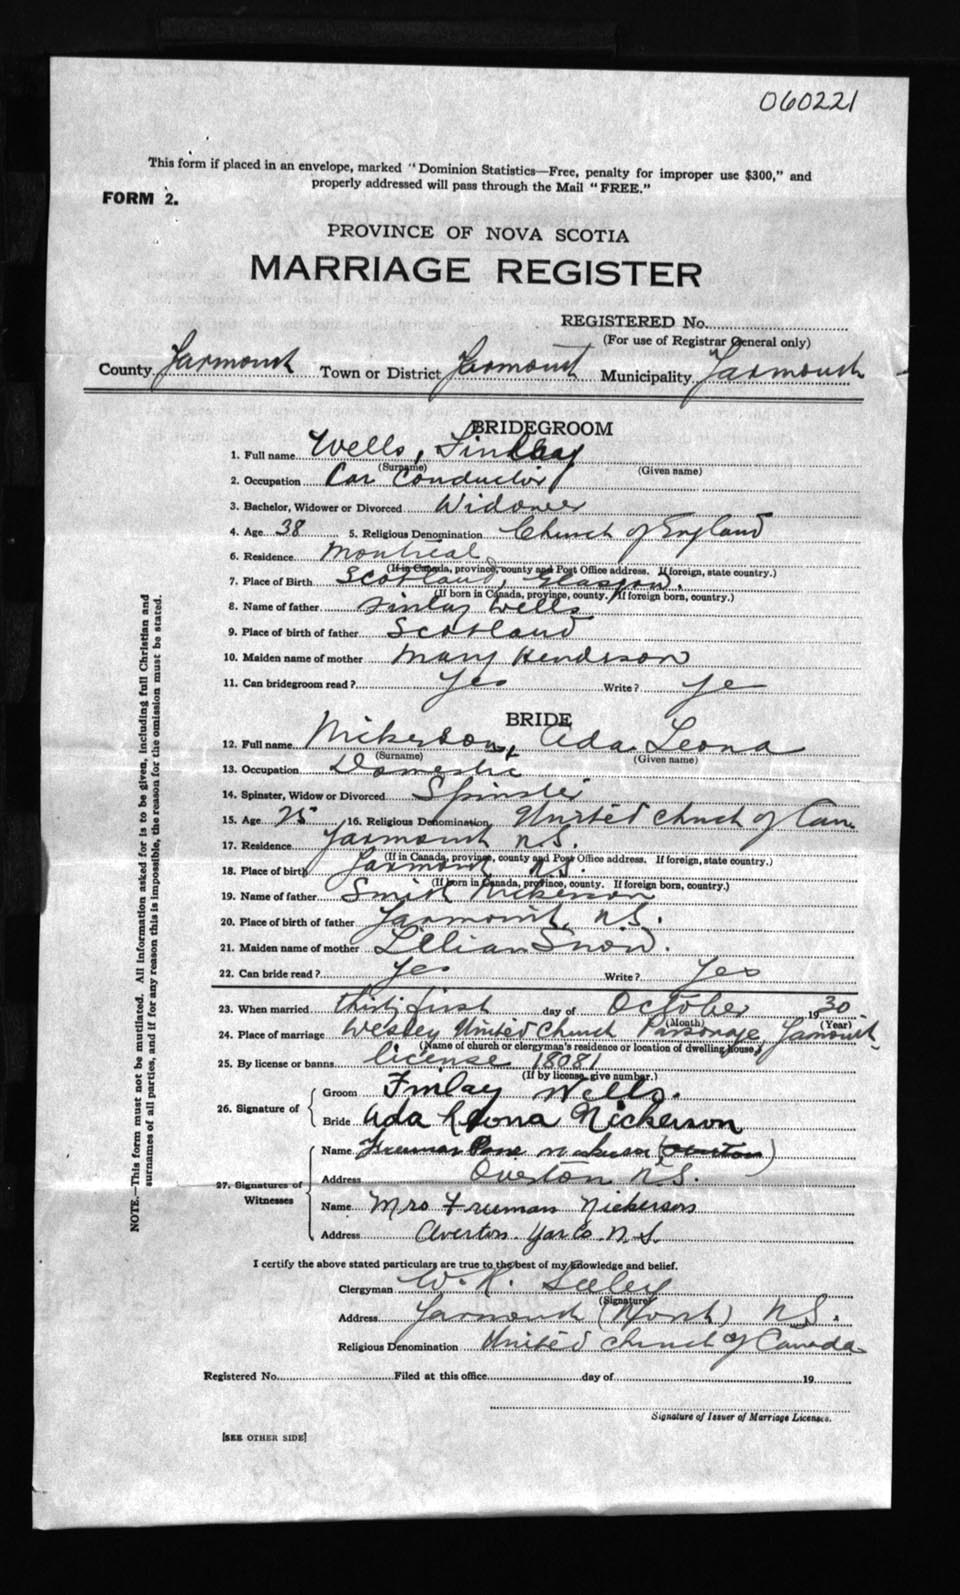 060221
This form if placed in an envelope, marked "Dominion Statistics—Free, penalty for improper use $300," and
properly addressed will pass through the Mail "FREE."
FORM 2.
PROVINCE OF NOVA SCOTIA
MARRIAGE REGISTER
REGISTERED No.
(For use of Registrar General only)
County Yarmouth Town or District Yarmouth Municipality Yarmouth
BRIDEGROOM
1. Full name Wells, Findlay
(Surname) (Given name)
2. Occupation Car Conductor
3. Bachelor, Widower or Divorced Widower
4. Age 38 5. Religious Denomination Church of England
6. Residence Montreal
(If in Canada, province, county and Post Office address. If foreign, state country.)
7. Place of Birth Scotland, Glasgow.
(If born in Canada, province, county. If foreign born, country.)
8. Name of father Finlay Wells
9. Place of birth of father Scotland
10. Maiden name of mother Mary Henderson
11. Can bridegroom read? Yes Write? Ye
BRIDE
12. Full name Nickerson, Ada Leona
(Surname) (Given name)
13. Occupation Domestic
14. Spinster, Widow or Divorced Spinster
15. Age 25 16. Religious Denomination United Church of Can
17. Residence Yarmouth N.S.
(If in Canada, province, county and Post Office address. If foreign, state country.)
18. Place of birth Yarmouth N.S.
(If born in Canada, province, county. If foreign born, country.)
19. Name of father Smith Nickerson
20. Place of birth of father Yarmouth, N.S.
21. Maiden name of mother Lilian Snow.
22. Can bride read? Yes Write? Yes
23. When married thirty first day of October 1930
(Month) (Year)
24. Place of marriage Wesley United Church Parsonage, Yarmouth
(Name of church or clergyman's residence or location of dwelling house)
25. By license or banns license 18081
(If by license, give number.)
26. Signature of
Groom Finlay Wells.
Bride Ada Leona Nickerson
27. Signatures of Witnesses
Name Freeman Nickerson (Overton)
Address Overton N.S.
Name Mrs Freeman Nickerson
Address Overton. Yar Co. N.S.
I certify the above stated particulars are true to the best of my knowledge and belief.
Clergyman W. R. Seeley
(Signature)
Address Yarmouth (North) N.S.
Religious Denomination United Church of Canada
Registered No. Filed at this office day of 19
Signature of Issuer of Marriage Licenses.
[SEE OTHER SIDE]
NOTE.—This form must not be mutilated. All information asked for is to be given, including full Christian and
surnames of all parties, and if for any reason this is impossible, the reason for the omission must be stated.